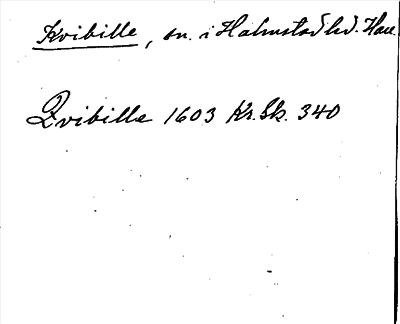 Kvibille, sn. i Halmstad hd. Hall
Qvibille 1603 Kr. Sk. 340